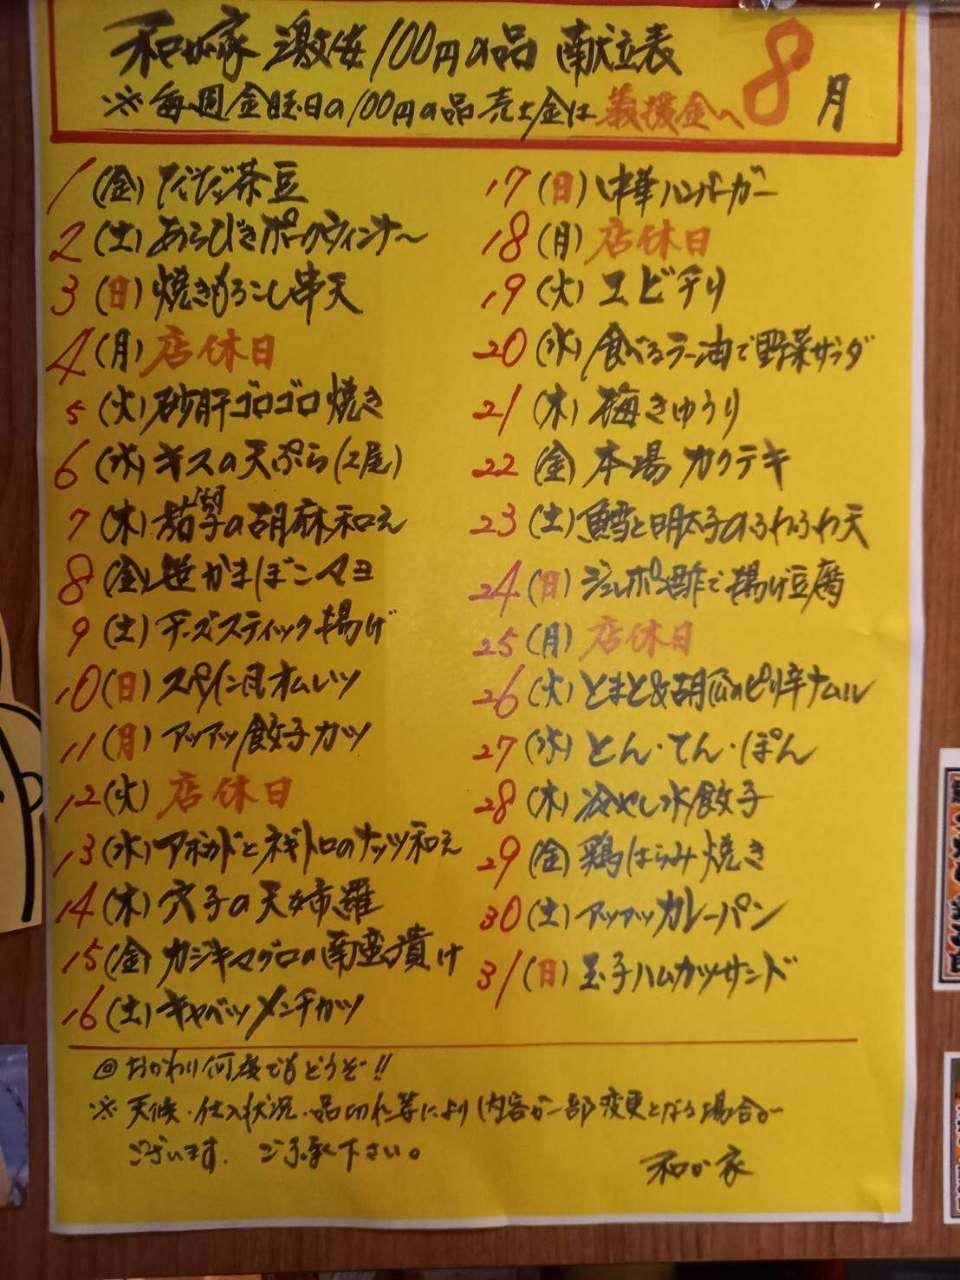 和が家 激安100円の品 献立表 8月
※毎週金曜日の100円の品売上金は義援金へ
1(金)だだ茶豆
2(土)あらびきポークウィンナー
3(日)焼きもろこし串天
4(月)店休日
5(火)砂肝ゴロゴロ焼き
6(水)キスの天ぷら(2尾)
7(木)茄子の胡麻和え
8(金)笹かまぼこマヨ
9(土)チーズスティック揚げ
10(日)スペイン風オムレツ
11(月)アツアツ餃子カツ
12(火)店休日
13(水)アボカドとネギトロのナッツ和え
14(木)穴子の天婦羅
15(金)カジキマグロの南蛮漬け
16(土)キャベツメンチカツ
17(日)中華ハンバーガー
18(月)店休日
19(火)エビチリ
20(水)食べるラー油で野菜サラダ
21(木)梅きゅうり
22(金)本場カクテキ
23(土)鱈と明太子のふわふわ天
24(日)ジュレポン酢で揚げ豆腐
25(月)店休日
26(火)とまと&胡瓜のピリ辛ナムル
27(水)とん・てん・ぽん
28(木)冷やし水餃子
29(金)鶏はらみ焼き
30(土)アツアツカレーパン
31(日)玉子ハムカツサンド
@おかわり何度でもどうぞ!!
※天候・仕入状況・品切れ等により内容が一部変更となる場合が
ございます。ご了承下さい。
和が家